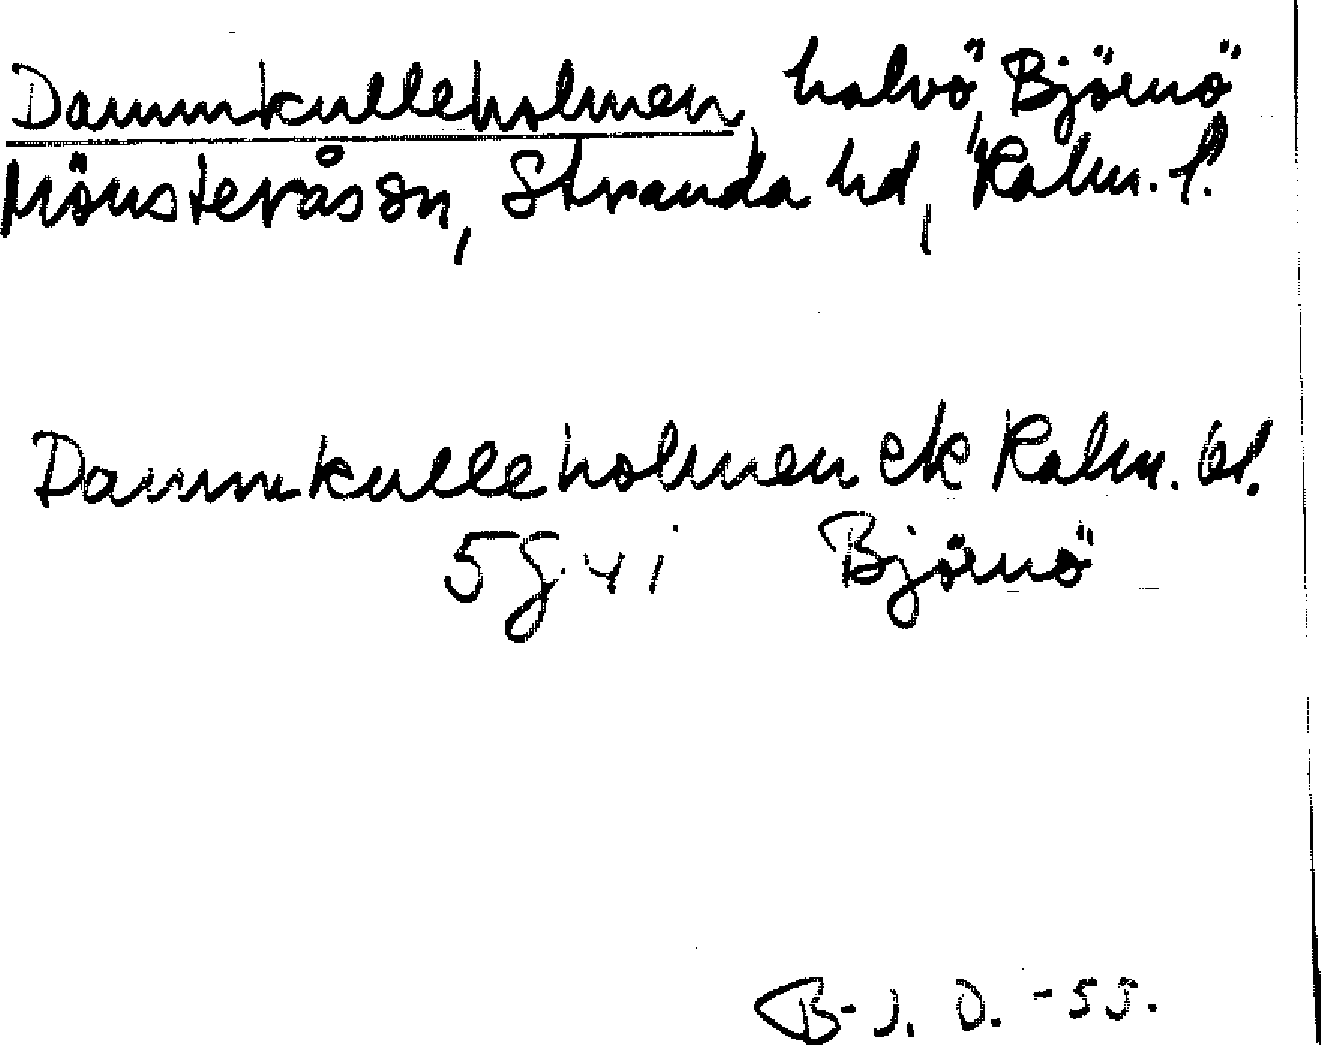 Dammkulleholmen, halvö, Björnö
Mönsterås sn, Stranda hd, Kalm. l.
Dammkulleholmen ek Kalm. bl.
5 g vi Björnö
B-J. D. -55.